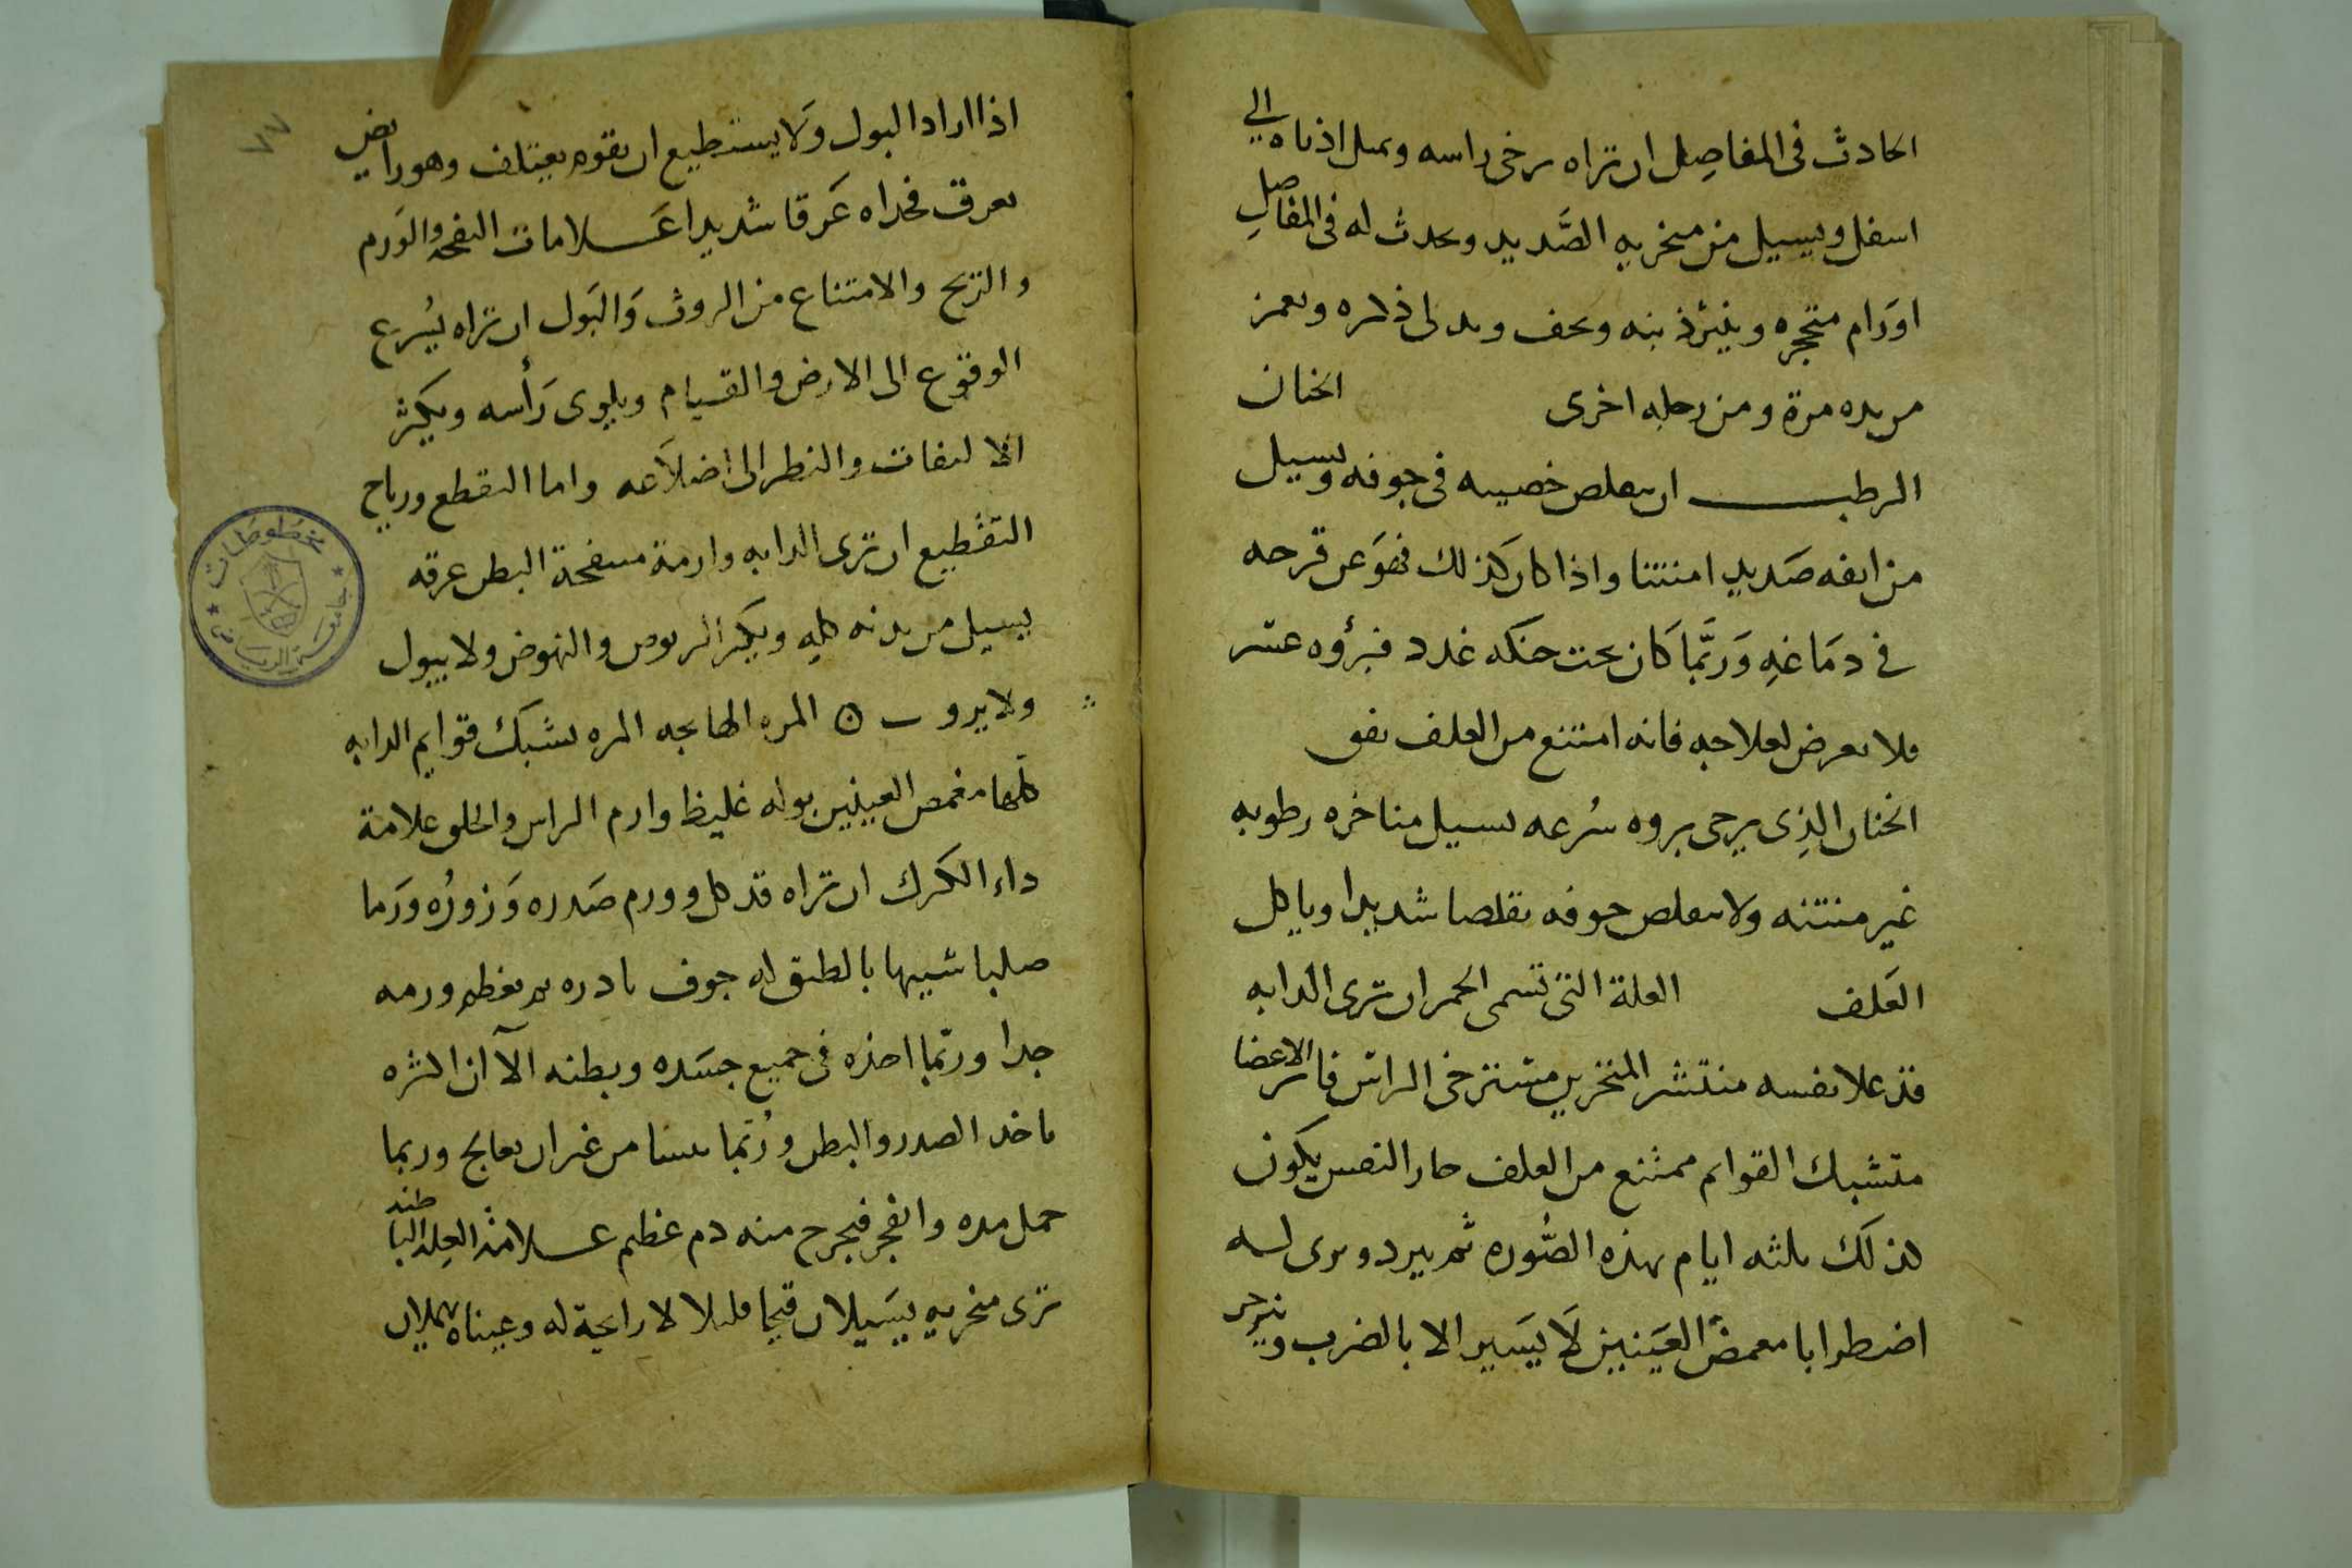 الحادث فى المفاصِل ان تراه يرخى راسه ويميل اذناه الي
اسفل ويسيل من منخريه الصَّديد ويحدث له فى المفاصِل
اورَام متحجره وينبئر ذنبه ويجف ويدلى ذكره ويغمز
من يده مرة ومن رجله اخرى الخنان
الرطب ان يتقلص خصييه فى جوفه ويسيل
من انفه صَديدا منتنا واذا كان كذلك فهوَ عن قرحه
فى دمَاغهِ وَربَّما كَان تحت حنكه غدد فبرؤه عسر
فلا يعرض لعلاجه فانه امتنع من العلف نفق
الخنان الذِى يرجى بروه سُرعه يسيل مناخره رطوبه
غير منتنه ولا يتقلص جوفه تقلصا شديدا وياكل
العَلف العلة التى تسمى الحمر ان ترى الدابه
قد علا نفسه منتشر المنخرين مسترخى الراس فاتر الاعضا
متشبك القوايم ممتنع من العلف حار النفس يكون
كذلك ثلثه ايام بهذه الصُّوره ثم يبرد ويرى له
اضطرابا مغمض العَينين لَا يَسير الا بالضرب ويزحر
اذا اراد البول وَلا يستطيع ان يقوم يعتلف وهو رابض
يعرق فخداه عَرقا شديدا عَلامات النفخه والوَرم
والريح والامتناع من الروث وَالبَول ان تراه يُسرع
الوقوع الى الارض والقيام ويلوى رَأسه ويكثر
الالتفات والنظر الى اضلاَعه واما التقطع ورياح
التقطيع ان ترى الدابه وارمة منتفخة البطن عرقه
يسيل من بدنه كله ويكثر الربوض والنهوض ولا يبول
ولا يروث ه المره الهايجه المره يشبك قوايم الدابه
كلها مغمض العينين بوله غليظ وارم الراس والحلق علامة
داء الكرك ان تراه قد كل وورم صَدره وَزورُه ورَما
صلبا شبيها بالطبق له جوف نادره ثم يعظم ورمه
جدا وربّما اخذه فى جميع جسَده وبطنه الآ ان اكثره
ياخذ الصدر والبطن وربّما من غير ان يعالج وربما
حمل مده وانفجر فيخرج منه دم عظيم علامة العله الباطنه
ترى منخريه يسَيلان قيحا قليلا لا رايحة له وعيناه تهملان
٧٧
مخطوطات
جامعة الرياض